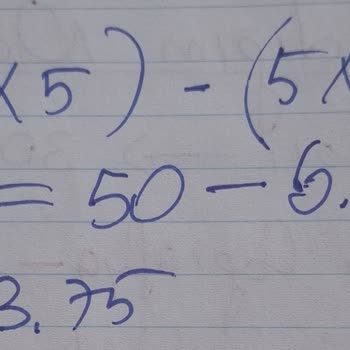 ×5) - (5×
= 50 - 6.
3.75